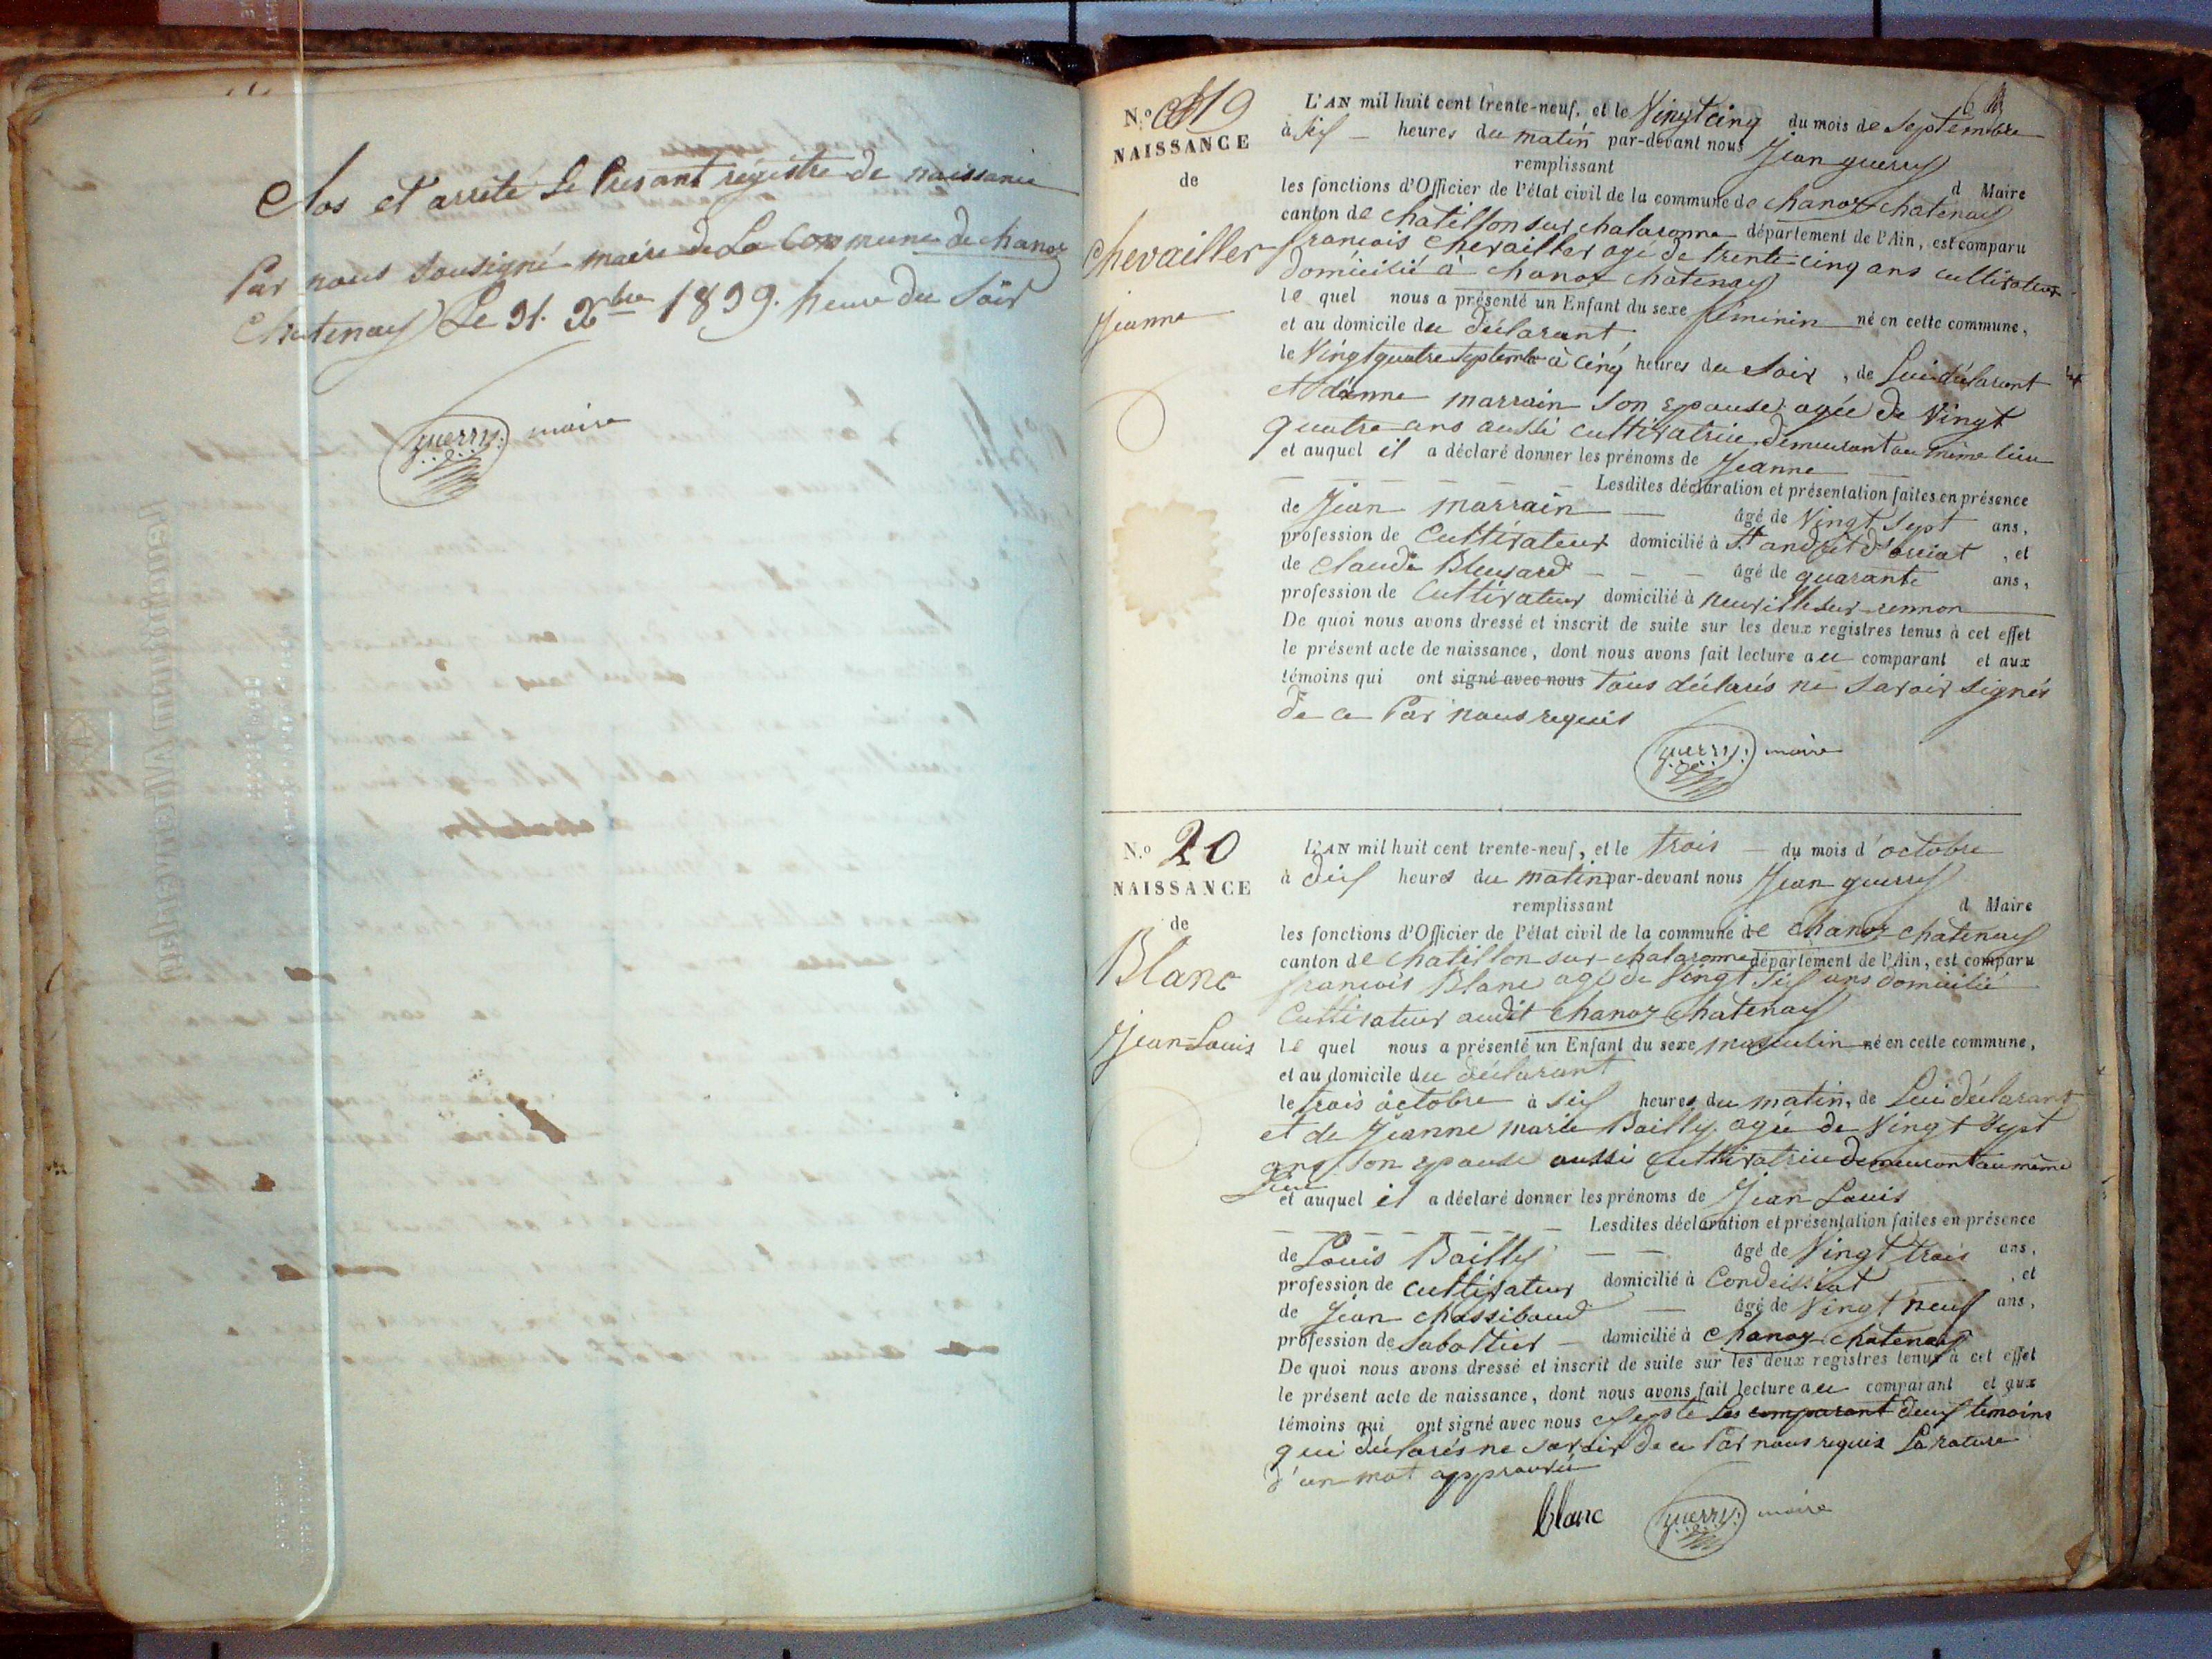 Clos et arrêté Le Present régistre de naissance
Par nous Sousigné maire de La Commune de chanoz
Chatenay Le 31. Xbre 1839. heure du Soir
guerry maire
N.o 19
NAISSANCE
de
Chevailler
Jeanne
L'AN mil huit cent trente-neuf, et le Vingt cinq du mois de Septembre
à Six heures du matin par-devant nous Jean guerry
remplissant d Maire
les fonctions d'Officier de l'état civil de la commune de chanoz chatenay
canton de chatillon sur chalaronne département de l'Ain, est comparu
francois Chevailler agé de trente cinq ans cultivateur
domicilié à chanoz chatenay
le quel nous a présenté un Enfant du sexe feminin né en cette commune,
et au domicile du déclarant
le Vingt quatre Septembre à cinq heures du Soir, de Lui déclarant
et marrain Son epouse agée de Vingt
quatre ans aussi cultivatrice demeurant au même lieu
et auquel il a déclaré donner les prénoms de Jeanne
Lesdites déclaration et présentation faites en présence
de Jean marrain âgé de Vingt Sept ans,
profession de Cultivateur domicilié à St andré , et
de Claude Bleusard âgé de quarante ans,
profession de Cultivateur domicilié à neuville sur rennon
De quoi nous avons dressé et inscrit de suite sur les deux registres tenus à cet effet
le présent acte de naissance, dont nous avons fait lecture au comparant et aux
témoins qui ont signé avec nous tous déclarés ne Savoir Signés
de ce Par nous requis
guerry maire
N.o 20
NAISSANCE
de
Blanc
Jean Louis
L'AN mil huit cent trente-neuf, et le trois du mois d'octobre
à dix heures du matin par-devant nous Jean guerry
remplissant d Maire
les fonctions d'Officier de l'état civil de la commune de chanoz chatenay
canton de chatillon sur chalaronne département de l'Ain, est comparu
francois Blanc agé de Vingt Six ans domicilié
Cultivateur audit chanoz chatenay
le quel nous a présenté un Enfant du sexe masculin né en cette commune,
et au domicile du déclarant
le trois octobre à Six heures du matin, de Lui déclarant
et de Jeanne marie Bailly agée de Vingt Sept
ans Son epouse aussi Cultivatrice demeurant au même
Lieu
et auquel il a déclaré donner les prénoms de Jean Louis
Lesdites déclaration et présentation faites en présence
de Louis Bailly âgé de Vingt trois ans,
profession de cultivateur domicilié à Condeissiat , et
de Jean chassibaud âgé de Vingt neuf ans,
profession de Sabottier domicilié à chanoz chatenay
De quoi nous avons dressé et inscrit de suite sur les deux registres tenus à cet effet
le présent acte de naissance, dont nous avons fait lecture au comparant et aux
témoins qui ont signé avec nous excepté Les comparant deux témoins
qui déclarés ne savoir de ce Par nous requis La rature
d'un mot approuvée
blanc guerry maire